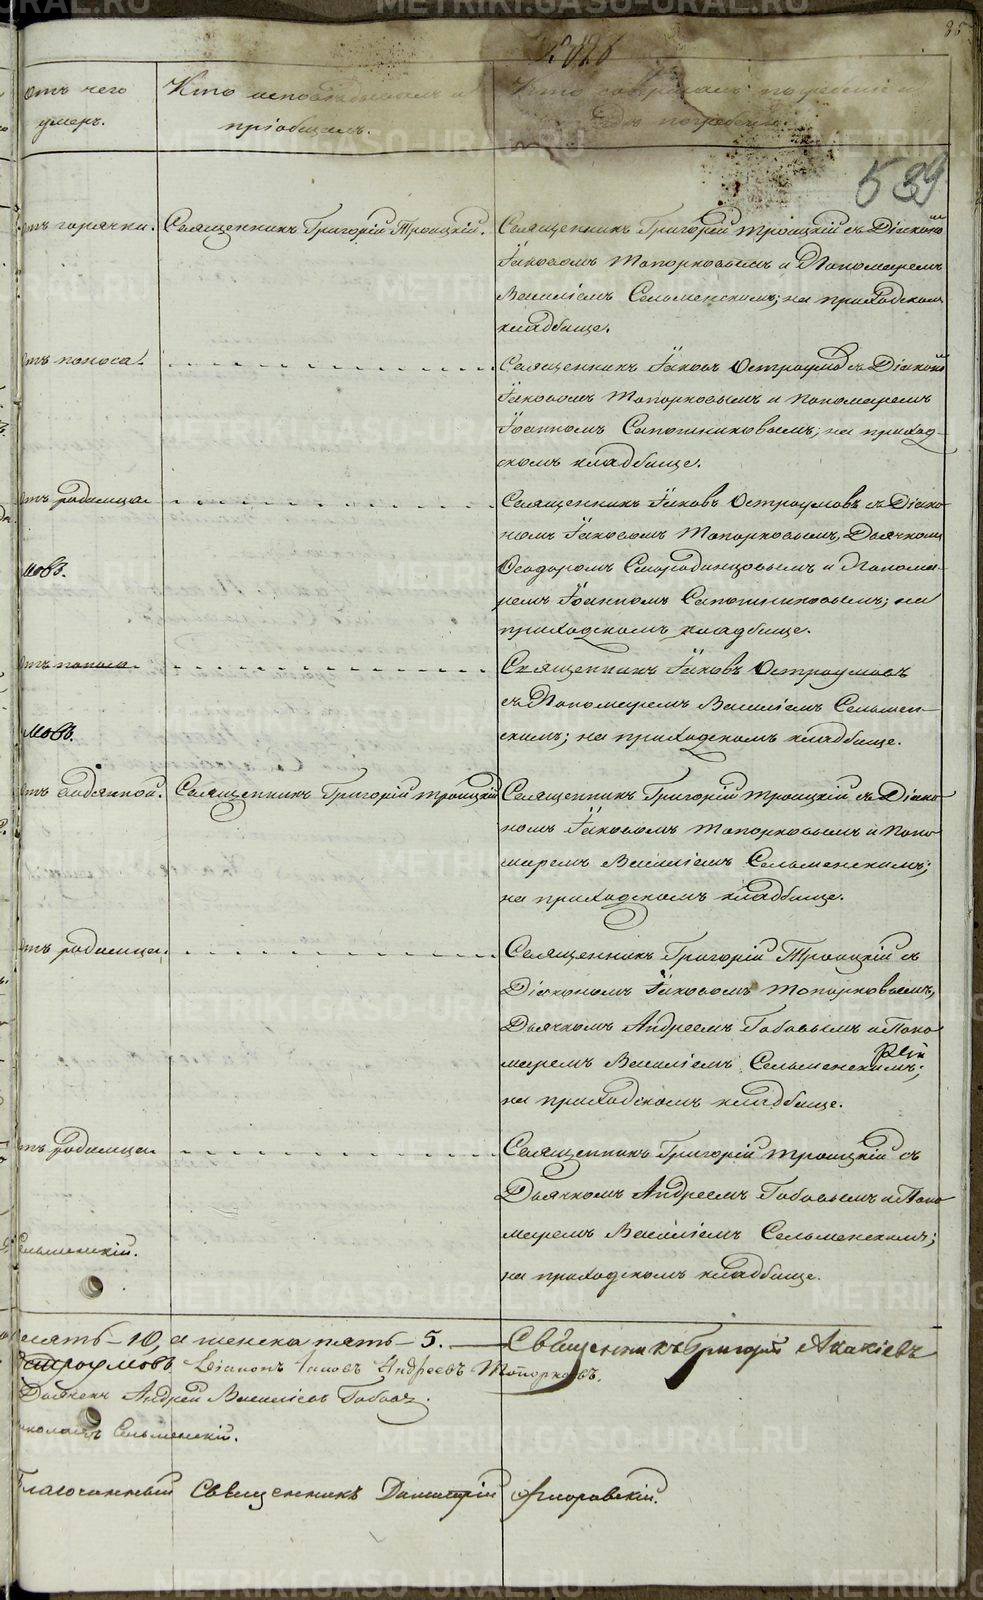 85
№ 126
отъ чего умеръ.
Кто исповѣдывалъ и пріобщалъ.
Кто совершалъ погребеніе и гдѣ погребены.
539
отъ горячки. Священникъ Григорій Троицкій. Священникъ Григорій Троицкій съ Діакономъ
Іаковомъ Топорковымъ и Пономаремъ
Василіемъ Сельменскимъ; на приходскомъ
кладбище.
отъ поноса. Священникъ Іаковъ Остроумовъ съ Діакономъ
Іаковомъ Топорковымъ и Пономаремъ
Іоанномъ Сапожниковымъ; на приход-
скомъ кладбище.
отъ родимца Священникъ Іаковъ Остроумовъ съ Діако-
номъ Іаковомъ Топорковымъ, Дьячкомъ
мовъ. Ѳеодоромъ Смородинцовымъ и Понома-
ремъ Іоанномъ Сапожниковымъ; на
приходскомъ кладбище.
отъ поноса. Священникъ Іаковъ Остроумовъ
съ Пономаремъ Василіемъ Сельмен-
мовъ. скимъ; на приходскомъ кладбище.
отъ водяной. Священникъ Григорій Троицкій Священникъ Григорій Троицкій съ Діако-
номъ Іаковомъ Топорковымъ и Поно-
маремъ Василіемъ Сельменскимъ;
на приходскомъ кладбище.
отъ родимца. Священникъ Григорій Троицкій съ
Діакономъ Іаковомъ Топорковымъ,
Дьячкомъ Андреемъ Бабовымъ и Поно-
маремъ Василіемъ Сельменскимъ;
на приходскомъ кладбище.
отъ родимца Священникъ Григорій Троицкій съ
Дьячкомъ Андреемъ Бабовымъ и Поно-
маремъ Василіемъ Сельменскимъ;
Сельменскій.
на приходскомъ кладбище.
10, а женска пять - 5. Священникъ Григорій
Остроумовъ Діаконъ Іаковъ Андреевъ Топорковъ.
Дьячекъ Андрей Василіевъ
Сельменскій.
Благочинный Священникъ Димитрій